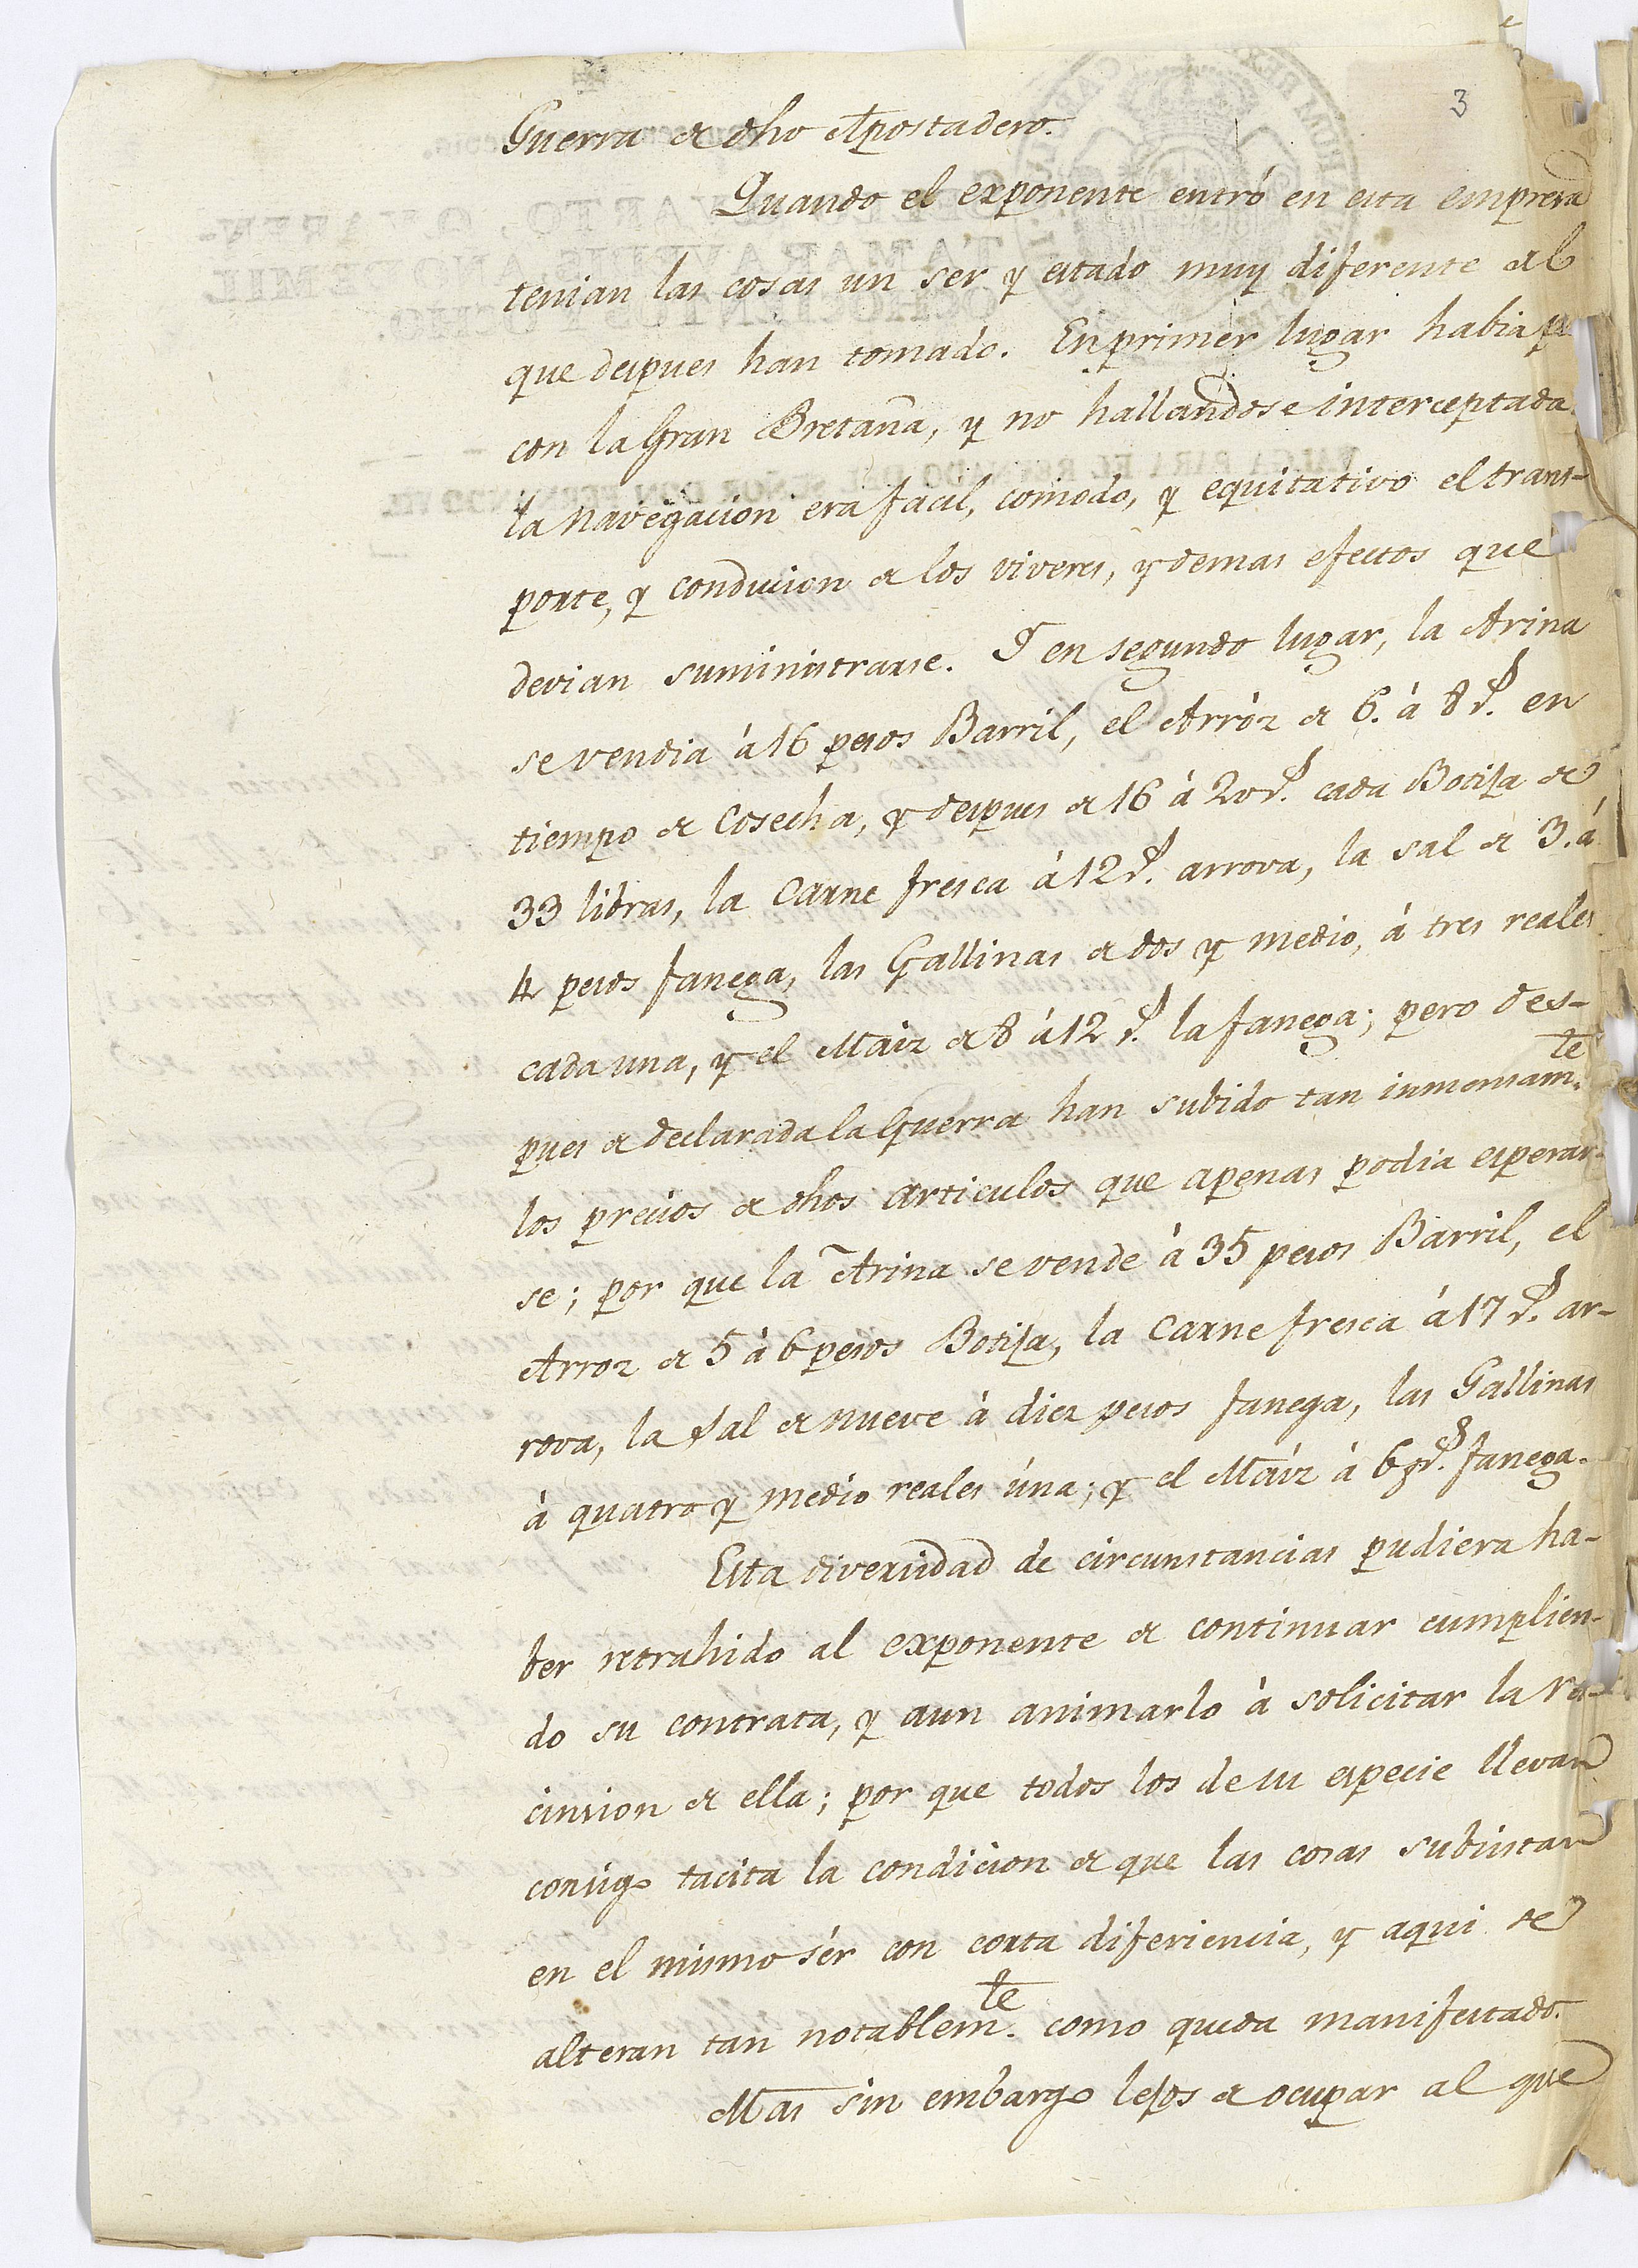 3
Guerra de dho Apostadero.
Quando el exponente entró en esta empresa
tenian las cosas un ser y estado muy diferente del
que despues han tomado. En primer lugar habia
con la Gran Bretaña, y no hallandose interceptada
la navegacion era facil, comodo, y equitativo el trans-
porte, y conducion de los viveres, y demas efectos que
devian suministrarse. Y en segundo lugar, la Arina
se vendia à 16 pesos Barril, el Arròz de 6. à 8 rs. en
tiempo de Cosecha, y despues de 16 à 20 rs. cada Botija de
33 libras, la Carne fresca à 12 rs. arrova, la sal de 3. à
4 pesos fanega, las Gallinas de dos y medio, à tres reales
cada una, y el Maiz de 8 à 12 rs. la fanega; pero des-
pues de declarada la Guerra han subido tan inmensamte.
los precios de dhos articulos que apenas podia esperar-
se; por que la Arina se vende à 35 pesos Barril, el
Arroz de 5 à 6 pesos Botija, la Carne fresca à 17 rs. ar-
rova, la Sal de nueve à diez pesos fanega, las Gallinas
à quatro y medio reales una; y el Maiz à 6 ps. fanega.
Esta diversidad de circunstancias pudiera ha-
ber retrahido al exponente de continuar cumplien-
do su contrata, y aun animarlo à solicitar la re-
cinsion de ella; por que todos los de su especie llevan
consigo tacita la condicion de que las cosas subsistan
en el mismo sér con corta diferiencia, y aqui se
alteran tan notablemte. como queda manifestado.
Mas sin embargo lejos de ocupar al que